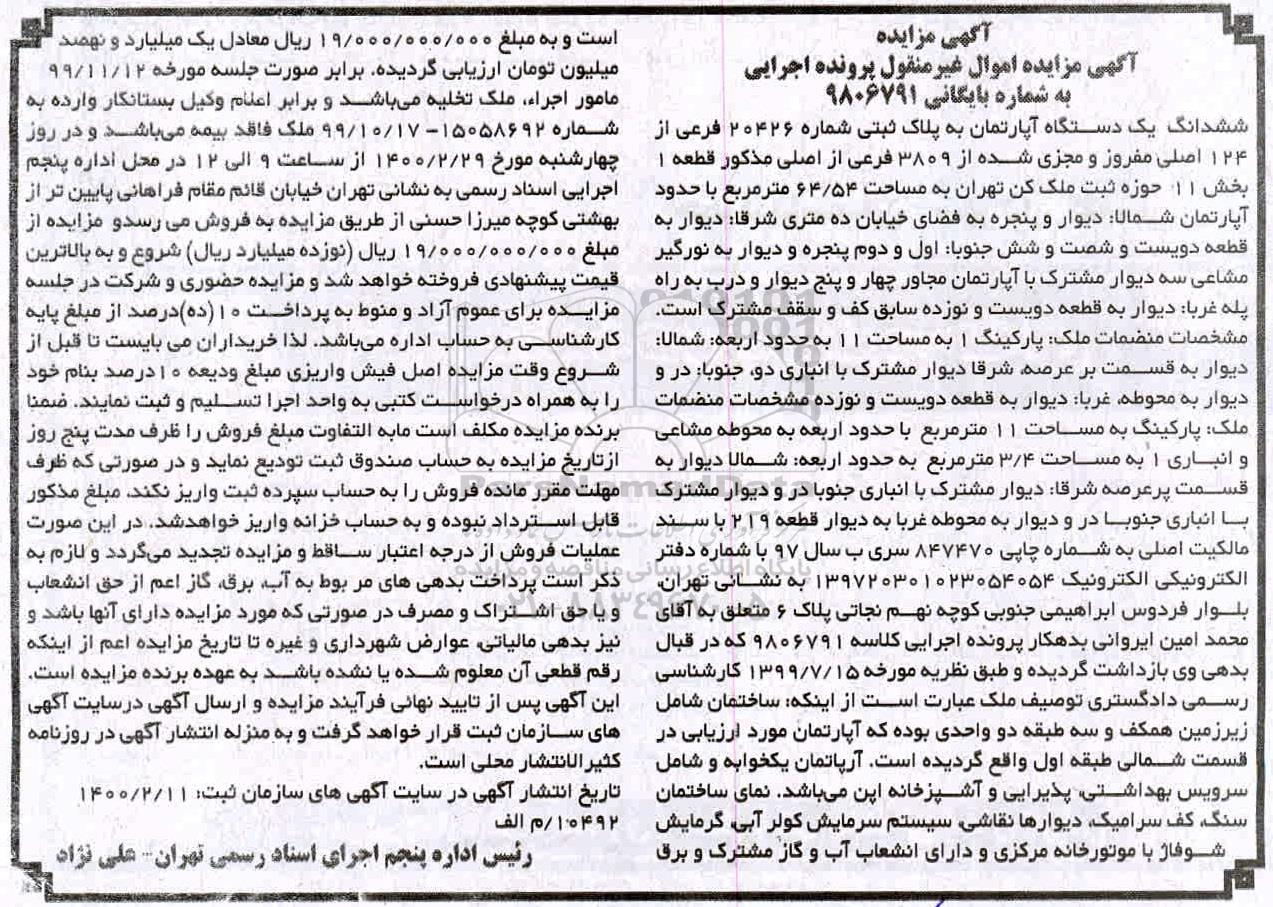 آگهی مزایده
آگهی مزایده اموال غیر منقول پرونده اجرایی
به شماره بایگانی ۹۸۰۶۷۹۱
ششدانگ یک دستگاه آپارتمان به پلاک ثبتی شماره ۲۰۴۲۶ فرعی از
۱۲۴ اصلی مفروز و مجزی شده از ۳۸۰۹ فرعی از اصلی مذکور قطعه ۱
بخش ۱۱ حوزه ثبت ملک کن تهران به مساحت ۶۴/۵۴ مترمربع با حدود
آپارتمان شمالا: دیوار و پنجره به فضای خیابان ده متری شرقا: دیوار به
قطعه دویست و شصت و شش جنوبا: اول و دوم پنجره و دیوار به نورگیر
مشاعی سه دیوار مشترک با آپارتمان مجاور چهار و پنج دیوار و درب به راه
پله غربا: دیوار به قطعه دویست و نوزده سابق کف و سقف مشترک است.
مشخصات منضمات ملک: پارکینگ ۱ به مساحت ۱۱ به حدود اربعه: شمالا:
دیوار به قسمت بر عرصه، شرقا دیوار مشترک با انباری دو، جنوبا: در و
دیوار به محوطه، غربا: دیوار به قطعه دویست و نوزده مشخصات منضمات
ملک: پارکینگ به مساحت ۱۱ مترمربع با حدود اربعه به محوطه مشاعی
و انباری ۱ به مساحت ۳/۴ مترمربع به حدود اربعه: شمالا دیوار به
قسمت پرعرصه شرقا: دیوار مشترک با انباری جنوبا در و دیوار مشترک
با انباری جنوبا در و دیوار به محوطه غربا به دیوار قطعه ۲۱۹ با سند
مالکیت اصلی به شماره چاپی ۸۴۷۴۷۰ سری ب سال ۹۷ با شماره دفتر
الکترونیکی الکترونیک ۱۳۹۷۲۰۳۰۱۰۲۳۰۵۴۰۵۴ به نشانی تهران،
بلوار فردوس ابراهیمی جنوبی کوچه نهم نجاتی پلاک ۶ متعلق به آقای
محمد امین ایروانی بدهکار پرونده اجرایی کلاسه ۹۸۰۶۷۹۱ که در قبال
بدهی وی بازداشت گردیده و طبق نظریه مورخه ۱۳۹۹/۷/۱۵ کارشناسی
رسمی دادگستری توصیف ملک عبارت است از اینکه: ساختمان شامل
زیرزمین همکف و سه طبقه دو واحدی بوده که آپارتمان مورد ارزیابی در
قسمت شمالی طبقه اول واقع گردیده است. آرپاتمان یکخوابه و شامل
سرویس بهداشتی، پذیرایی و آشپزخانه اپن می‌باشد. نمای ساختمان
سنگ، کف سرامیک، دیوارها نقاشی، سیستم سرمایش کولر آبی، گرمایش
شوفاژ با موتورخانه مرکزی و دارای انشعاب آب و گاز مشترک و برق
است و به مبلغ ۱۹/۰۰۰/۰۰۰/۰۰۰ ریال معادل یک میلیارد و نهصد
میلیون تومان ارزیابی گردیده. برابر صورت جلسه مورخه ۹۹/۱۱/۱۲
مامور اجراء، ملک تخلیه می‌باشد و برابر اعلام وکیل بستانکار وارده به
شماره ۱۵۰۵۸۶۹۲- ۹۹/۱۰/۱۷ ملک فاقد بیمه می‌باشد و در روز
چهارشنبه مورخ ۱۴۰۰/۲/۲۹ از ساعت ۹ الی ۱۲ در محل اداره پنجم
اجرایی اسناد رسمی به نشانی تهران خیابان قائم مقام فراهانی پایین تر از
بهشتی کوچه میرزا حسنی از طریق مزایده به فروش می رسدو مزایده از
مبلغ ۱۹/۰۰۰/۰۰۰/۰۰۰ ریال (نوزده میلیارد ریال) شروع و به بالاترین
قیمت پیشنهادی فروخته خواهد شد و مزایده حضوری و شرکت در جلسه
مزایده برای عموم آزاد و منوط به پرداخت ۱۰(ده)درصد از مبلغ پایه
کارشناسی به حساب اداره می‌باشد. لذا خریداران می بایست تا قبل از
شروع وقت مزایده اصل فیش واریزی مبلغ ودیعه ۱۰درصد بنام خود
را به همراه درخواست کتبی به واحد اجرا تسلیم و ثبت نمایند. ضمنا
برنده مزایده مکلف است مابه التفاوت مبلغ فروش را ظرف مدت پنج روز
ازتاریخ مزایده به حساب صندوق ثبت تودیع نماید و در صورتی که ظرف
مهلت مقرر مانده فروش را به حساب سپرده ثبت واریز نکند، مبلغ مذکور
قابل استرداد نبوده و به حساب خزانه واریز خواهدشد. در این صورت
عملیات فروش از درجه اعتبار ساقط و مزایده تجدید می‌گردد و لازم به
ذکر است پرداخت بدهی های مر بوط به آب، برق، گاز اعم از حق انشعاب
و یا حق اشتراک و مصرف در صورتی که مورد مزایده دارای آنها باشد و
نیز بدهی مالیاتی، عوارض شهرداری و غیره تا تاریخ مزایده اعم از اینکه
رقم قطعی آن معلوم شده یا نشده باشد به عهده برنده مزایده است.
این آگهی پس از تایید نهائی فرآیند مزایده و ارسال آگهی درسایت آگهی
های سازمان ثبت قرار خواهد گرفت و به منزله انتشار آگهی در روزنامه
کثیرالانتشار محلی است.
تاریخ انتشار آگهی در سایت آگهی های سازمان ثبت: ۱۴۰۰/۲/۱۱
۱۰۴۹۲/م الف
رئیس اداره پنجم اجرای اسناد رسمی تهران- علی نژاد
ParsNamadData
پایگاه اطلاع رسانی مناقصه و مزایده